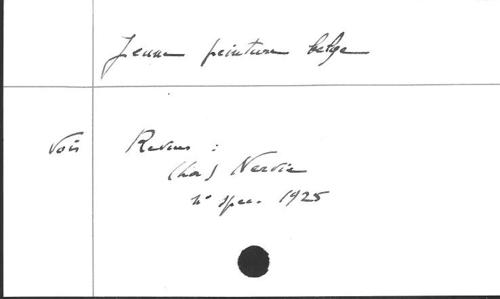 Jeune peinture belge
Voir Revues :
(La) Nervie
n° spec. 1925